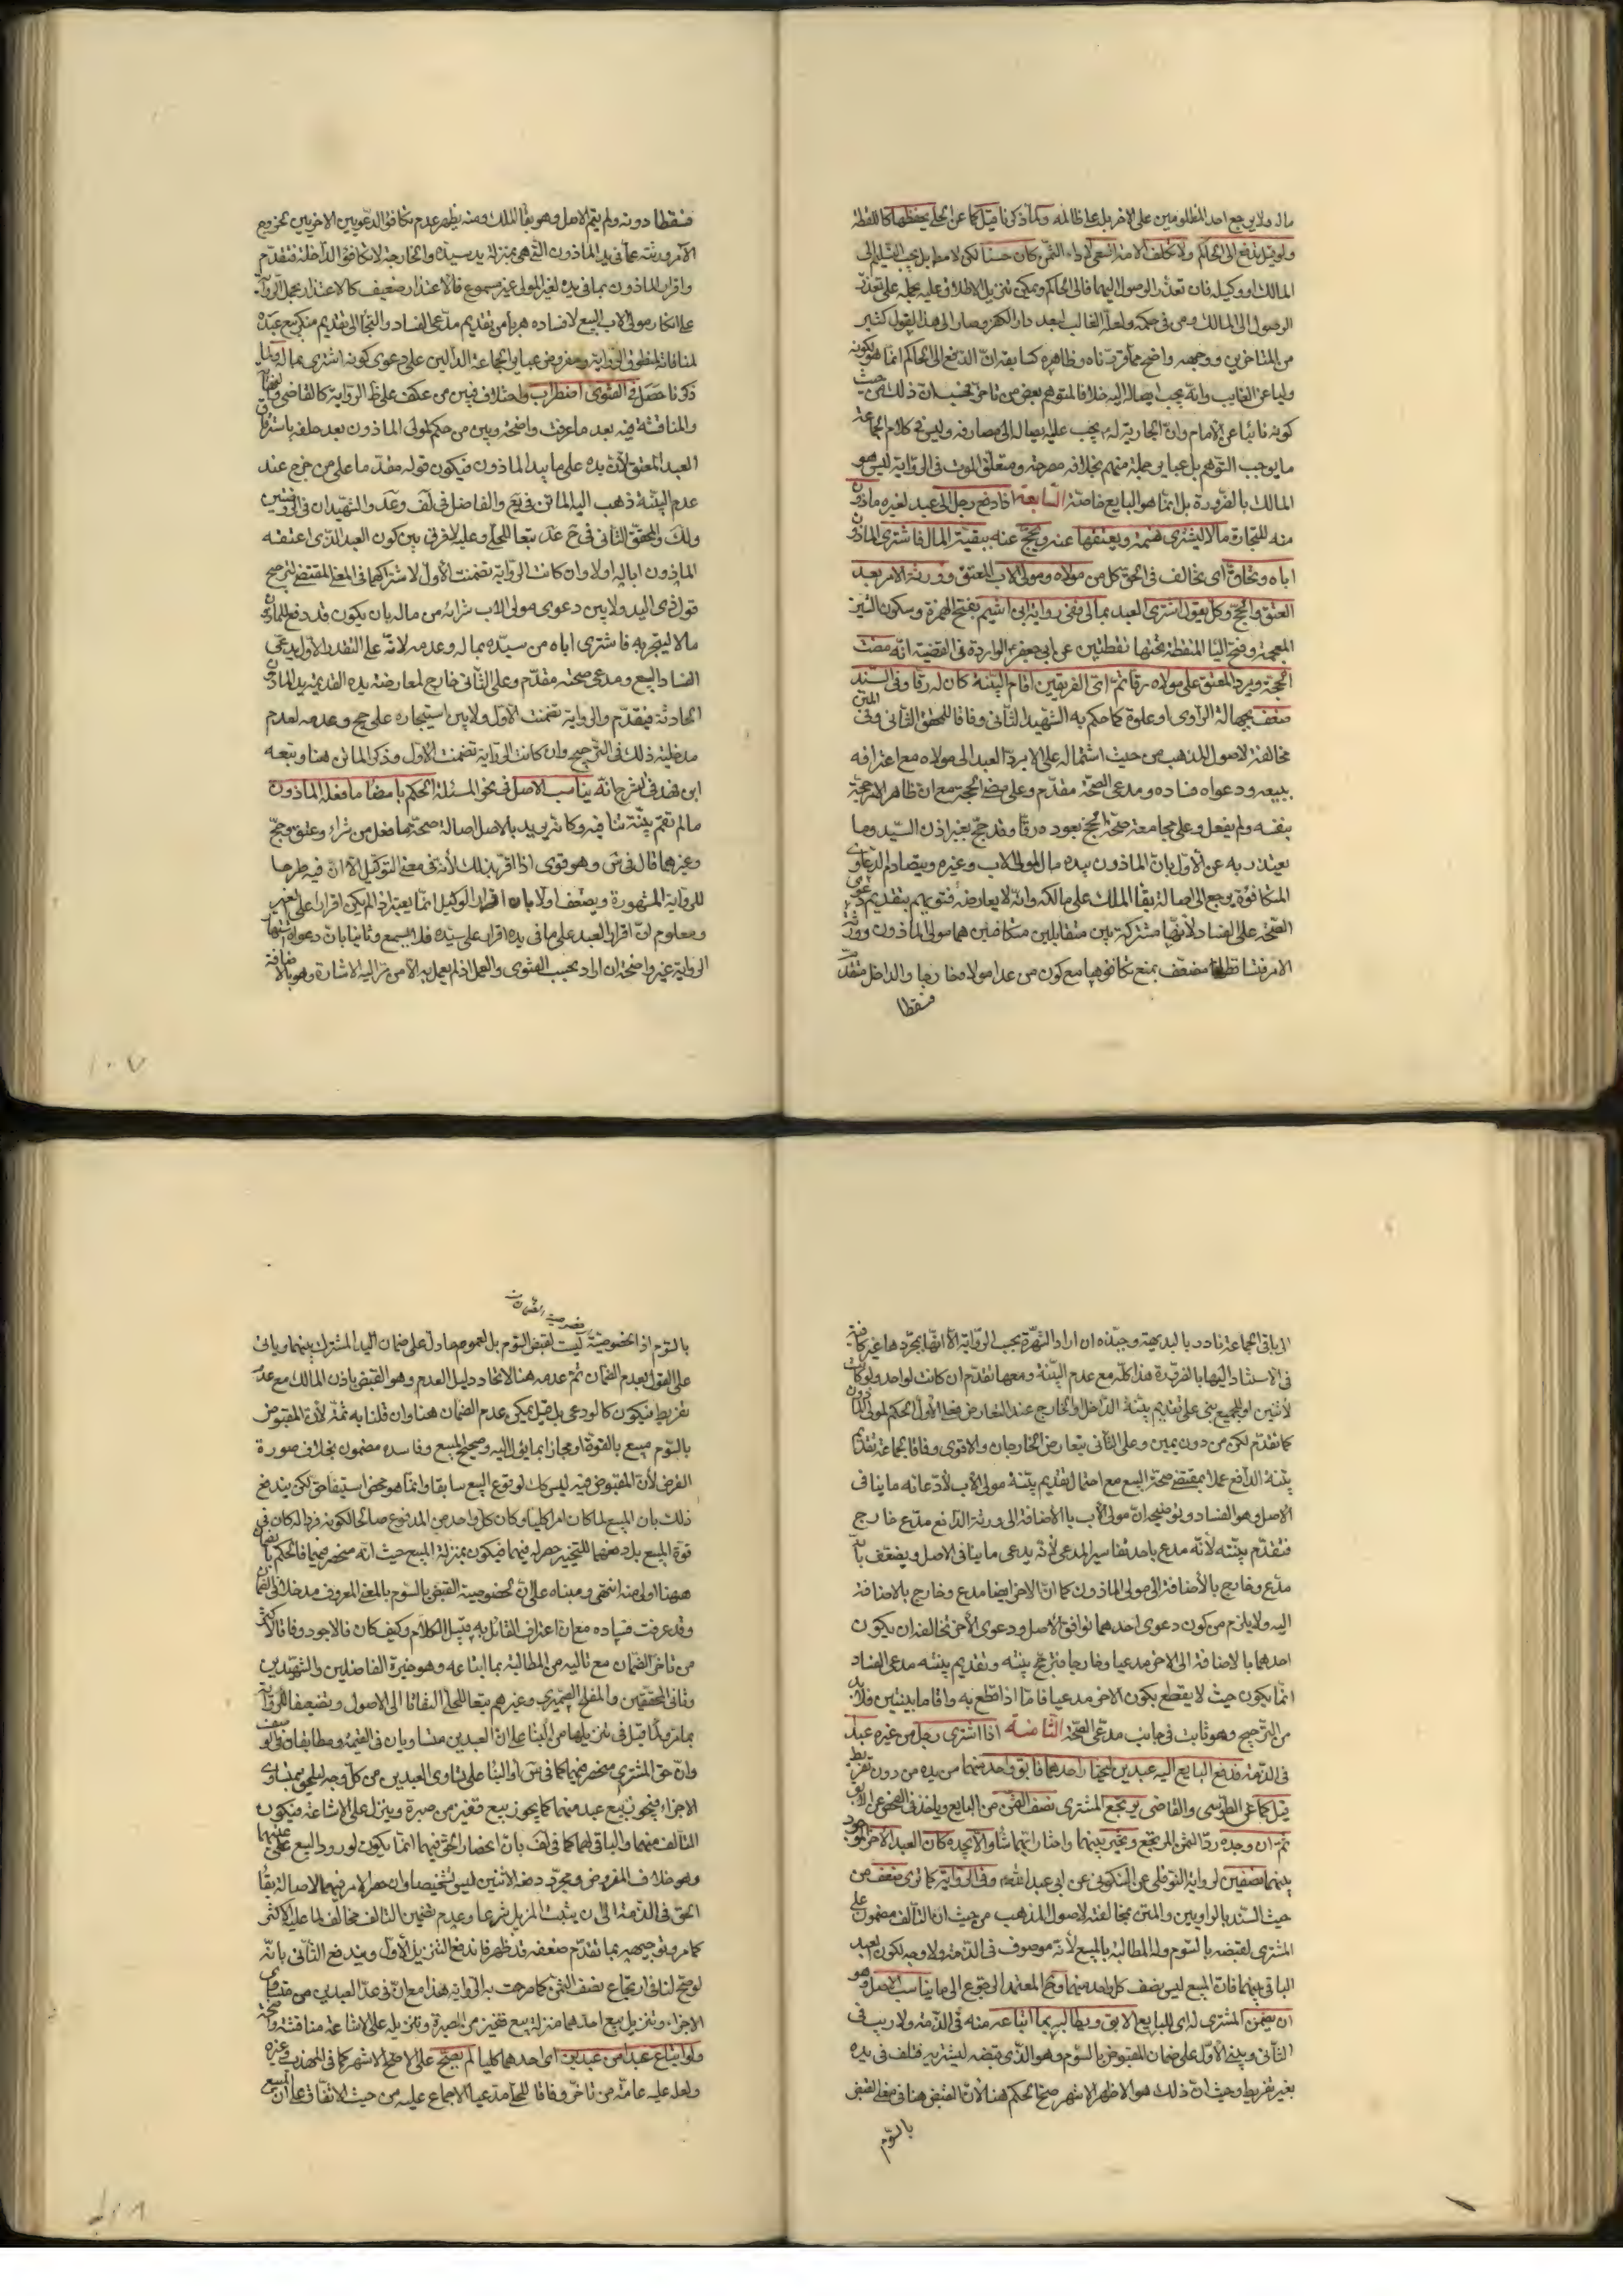 ماله ولا يرجع احد المظلومين على الاخر بل على ظالمه وكما ذكرنا قيل كما عن الحلي يحفظها كاللقطة
ولو قيل يدفع الى الحاكم ولا تكلف الامة السعي لاداء الثمن كان حسنا لكن لا مط بل يجب التسليم الى
المالك او وكيله فان تعذر الوصول اليهما فالى الحاكم ويمكن تنزيل الاطلاق عليه بحمله على تعذر
الوصول الى المالك ومن في حكمه ولعله الغالب لبعد دار الكفر وصار الى هذا القول كثير
من المتاخرين ووجهه واضح مما قررناه وظاهره كسابقه ان الدفع الى الحاكم انما هو لكونه
وليا عن الغايب وانه يجب ايصاله اليه خلافا لمتوهم بعض من تاخر فحسب ان ذلك من حيث
كونه نائبا عن الامام وان الجارية له فيجب عليه ايصاله الى مصارفه وليس في كلام الجماعة
ما يوجب التوهم بل عباير جملة منهم بخلافه مصرحة ومتعلق الموت في الرواية ليس هو
المالك بالضرورة بل انما هو البايع خاصة السابعة اذا دفع رجل الى عبد لغيره ماذون
منه للتجارة مالا ليشتري نسمة ويعتقها عنه ويحج عنه ببقية المال فاشترى الماذون
اباه وتحاق اى تخالف في الحق كل من مولاه ومولى الاب المعتق وورثة الامر بعد
العتق والحج وكل يقول اشترى العبد بمالي ففي رواية ابي اشيم بفتح الهمزة وسكون الشين
المعجمة وفتح اليا المنقطة تحتها نقطتين عن ابي جعفر ع الواردة في القضية انه مضت
الحجة ويرد المعتق على مولاه رقا ثم اى الفريقين اقام البينة كان له رقا وفي السند
ضعف بجهالة الراوي او غلوه كما حكم به الشهيد الثاني وفاقا للمحقق الثاني وفي المتن
مخالفة لاصول المذهب من حيث اشتماله على الامر برد العبد الى مولاه مع اعترافه
ببيعه ودعواه فساده ومدعي الصحة مقدم وعلى مضي الحجة مع ان ظاهر الامر حجه
بنفسه ولم يفعل وعلى مجامعة صحة الحج لعوده رقا وقد حج بغير اذن السيد وما
يعتذر به عن الاول بان الماذون بيده مال المولى الاب وغيره وبتصادم الدعاوي
المتكافؤة يرجع الى اصالة بقاء الملك على مالكه وانه لا يعارضه فتويهم بتقديم دعوى
الصحة على الفساد لانها مشتركة بين متقابلين متكافئين هما مولى الماذون وورثة
الامر فتساقطا مضعف بمنع تكافؤهما مع كون من عدا مولاه خارجا والداخل مقدم
فسقطا
فسقطا دونه ولم يتم الاصل وهو بقاء الملك ومنه يظهر عدم تكافؤ الدعويين الاخريين لخروج
الامر وورثته عما في يد الماذون التي هي بمنزلة يد سيده والخارجة لا تكافؤ الداخلة فتقدم
واقرار الماذون بما في يده لغير المولى غير مسموع فالاعتذار ضعيف كالاعتذار بحمل الرواية
على انكار مولى الاب البيع لا فساده هربا من تقديم مدعي الفساد والتجا الى تقديم منكر بيع عبده
لمنافاته لمنطوق الرواية ومفروض عباير الجماعة الدالين على دعوى كونه اشترى بماله ولما
ذكرنا حصل في الفتوى اضطراب واختلاف فبين من عكف على ظ الرواية كالقاضي
والمناقشة فيه بعد ما عرفت واضحة وبين من حكم لمولى الماذون بعد حلفه باسترقاق
العبد المعتق لان يده على ما بيد الماذون فيكون قوله مقدما على من خرج عند
عدم البينة ذهب اليه الماتن في يع والفاضل في لف وعد والشهيدان في
ولك والمحقق الثاني في ح عد تبعا للحلي وعليه لا فرق بين كون العبد الذي اعتقه
الماذون اباله اولا وان كانت الرواية تضمنت الاول لاشتراكهما في المعنى المقتضي لترجيح
قول ذي اليد ولا بين دعوى مولى الاب شرائه من ماله بان يكون قد دفع للماذون
مالا ليتجر به فاشترى اباه من سيده بماله وعدمه لانه على التقدير الاول يدعى
الفساد البيع ومدعي صحته مقدم وعلى الثاني خارج لمعارضة يده القديمة يد الماذون
الحادثة فيقدم والرواية تضمنت الاول ولا بين استيجاره على حج وعدمه لعدم
مدخلية ذلك في الترجيح وان كانت الرواية تضمنت الاول وذكر الماتن هنا وتبعه
ابن فهد في الشرح انه يناسب الاصل في نحو المسئلة الحكم بامضاء ما فعله الماذون
ما لم تقم بينة تنافيه وكانه يريد بالاصل اصالة صحة ما فعل من شراء وعتق وحج
وغيرهما قال في س وهو قوى اذا اقر بذلك لانه في معنى التوكيل الا ان فيه طرحا
للرواية المشهورة ويضعف اولا بان اقرار الوكيل انما يعتبر اذا لم يكن اقرارا على الغير
ومعلوم ان اقرار العبد على ما في يده اقرار على سيده فلا يسمع وثانيا بان دعواه اشتهار
الرواية غير واضحة ان اراد بحسب الفتوى والعمل اذ لم يعمل به الا من مر اليه الاشارة وهو بالاضافة
الى باقي الجماعة نادر بالبديهة وجيدة ان اراد الشهرة بحسب الرواية الا انها بمجردها غير كافية
في الاستناد اليها بالضرورة هذا كله مع عدم البينة ومعها تقدم ان كانت لواحد ولو كانت
لاثنين او للجميع بنى على تقديم بينة الداخل والخارج عند التعارض فعلى الاول الحكم لمولى الماذون
كما تقدم لكن من دون يمين وعلى الثاني يتعارض الخارجان والاقوى وفاقا لجماعة تقديم
بينة الدافع عملا بمقتضى صحة البيع مع احتمال تقديم بينة مولى الاب لادعائه ما ينافي
الاصل وهو الفساد وتوضيحه ان مولى الاب بالاضافة الى ورثة الدافع مدع خارج
فتقدم بينته لانه مدع باحد تفاسير المدعي لانه يدعي ما ينافي الاصل ويضعف بانه
مدع وخارج بالاضافة الى مولى الماذون كما ان الاخر ايضا مدع وخارج بالاضافة
اليه ولا يلزم من كون دعوى احدهما توافق الاصل ودعوى الاخر تخالفه ان يكون
احدهما بالاضافة الى الاخر مدعيا وخارجا فترجح بينته وتقديم بينته مدعي الفساد
انما يكون حيث لا يقطع بكون الاخر مدعيا فاما اذا قطع به واقاما بينتين فلابد
من الترجيح وهو ثابت في جانب مدعي الصحة الثامنة اذا اشترى رجل من غيره عبدا
في الذمة فدفع البايع اليه عبدين ليختار احدهما فابق واحد منهما من يده من دون تفريط
قيل كما عن الطوسي والقاضي يرتجع المشتري نصف الثمن من البايع وياخذ في الفحص عن الابق
ثم ان وجده رد الثمن المرتجع وتخير بينهما واختار ايهما شاء والا يجده كان العبد الاخر الموجود
بينهما نصفين لرواية النوفلي عن السكوني عن ابي عبد الله ع وفي الرواية كما ترى ضعف من
حيث السند بالراويين والمتن بمخالفته لاصول المذهب من حيث ان التالف مضمون على
المشتري لقبضه بالسوم وله المطالبة بالمبيع لانه موصوف في الذمة ولا وجه لكون العبد
الباقي بينهما فان المبيع ليس نصف كل واحد منهما وفي المعتمد الرجوع الى ما يناسب الاصل وهو
ان يضمن المشتري له اى للبايع الابق ويطالبه بما ابتاعه منه في الذمة ولا ريب في
الثاني ويبنى الاول على ضمان المقبوض بالسوم وهو الذي قبضه ليشتريه فتلف في يده
بغير تفريط وحيث ان ذلك هو الاظهر الاشهر صح الحكم هنا لان القبض هنا في معنى القبض
بالسوم
بالسوم اذ الخصوصية ليست لقبض السوم بل لعموم ما دل على ضمان اليد المشترك بينهما وياتي
على القول بعدم الضمان ثم عدمه هنا لاتحاد دليل العدم وهو القبض باذن المالك مع عدم
تفريط فيكون كالودعي بل قيل يمكن عدم الضمان هنا وان قلنا به ثمة لان المقبوض
بالسوم مبيع بالقوة او مجاز ابما يؤل اليه وصحيح المبيع وفاسده مضمون بخلاف صورة
الفرض لان المقبوض فيه ليس كك لوقوع البيع سابقا وانما هو محض استيفاء حق لكن يندفع
ذلك بان المبيع لما كان امرا كليا وكان كل واحد من المدفوع صالحا لكونه فردا له كان في
قوة المبيع بل دفعهما للتخيير حصر له فيهما فيكون بمنزلة المبيع حيث انه منحصر فيهما فالحكم بالضمان
ههنا اولى منه انتهى ومبناه على ان لخصوصية القبض بالسوم بالمعنى المعروف مدخلا في الضمان
وقد عرفت فساده مع ان اعتراف القائل به قبيل الكلام وكيف كان فالاجود وفاقا لاكثر
من تاخر الضمان مع تاليه من المطالبة بما ابتاعه وهو خيرة الفاضلين والشهيدين
وثاني المحققين والمفلح الصيمري وغيرهم تبعا للحلي التفاتا الى الاصول وتضعيفا للرواية
بما مر وكذا قيل في تنزيلها من البناء على ان العبدين متساويان في القيمة ومطابقان في الوصف
وان حق المشتري منحصر فيهما كما في س او البناء على تساوى العبدين من كل وجه ليلحق بمتساوى
الاجزاء فيجوز بيع عبد منهما كما يجوز بيع قفيز من صبرة وينزل على الاشاعة فيكون
التالف منهما والباقي لهما كما في لف بان انحصار الحق فيهما انما يكون لورود البيع على عينهما
وهو خلاف المفروض ومجرد دفعه الاثنين ليس تشخيصا وان حصر الامر فيهما لاصالة بقاء
الحق في الذمة الى ان يثبت المزيل شرعا وعدم تضمين التالف مخالف لما عليه الاكثر
كما مر وتوجيهه بما تقدم ضعفه قد ظهر فاندفع التنزيل الاول ويندفع الثاني بانه
لو صح لنافى ارتجاع نصف الثمن كما صرحت به الرواية هذا مع ان في عد العبدين من متساوى
الاجزاء وتنزيل بيع احدهما منزلة بيع قفيز من الصبرة وتنزيله على الاشاعة مناقشة واضحة
ولو ابتاع عبدا من عبدين اى احدهما كليا لم يصح على الاصح الاشهر كما في المهذب وغيره
ولعله عليه عامة من تاخر وفاقا للحلي مدعيا الاجماع عليه من حيث الاتفاق على ان المبيع